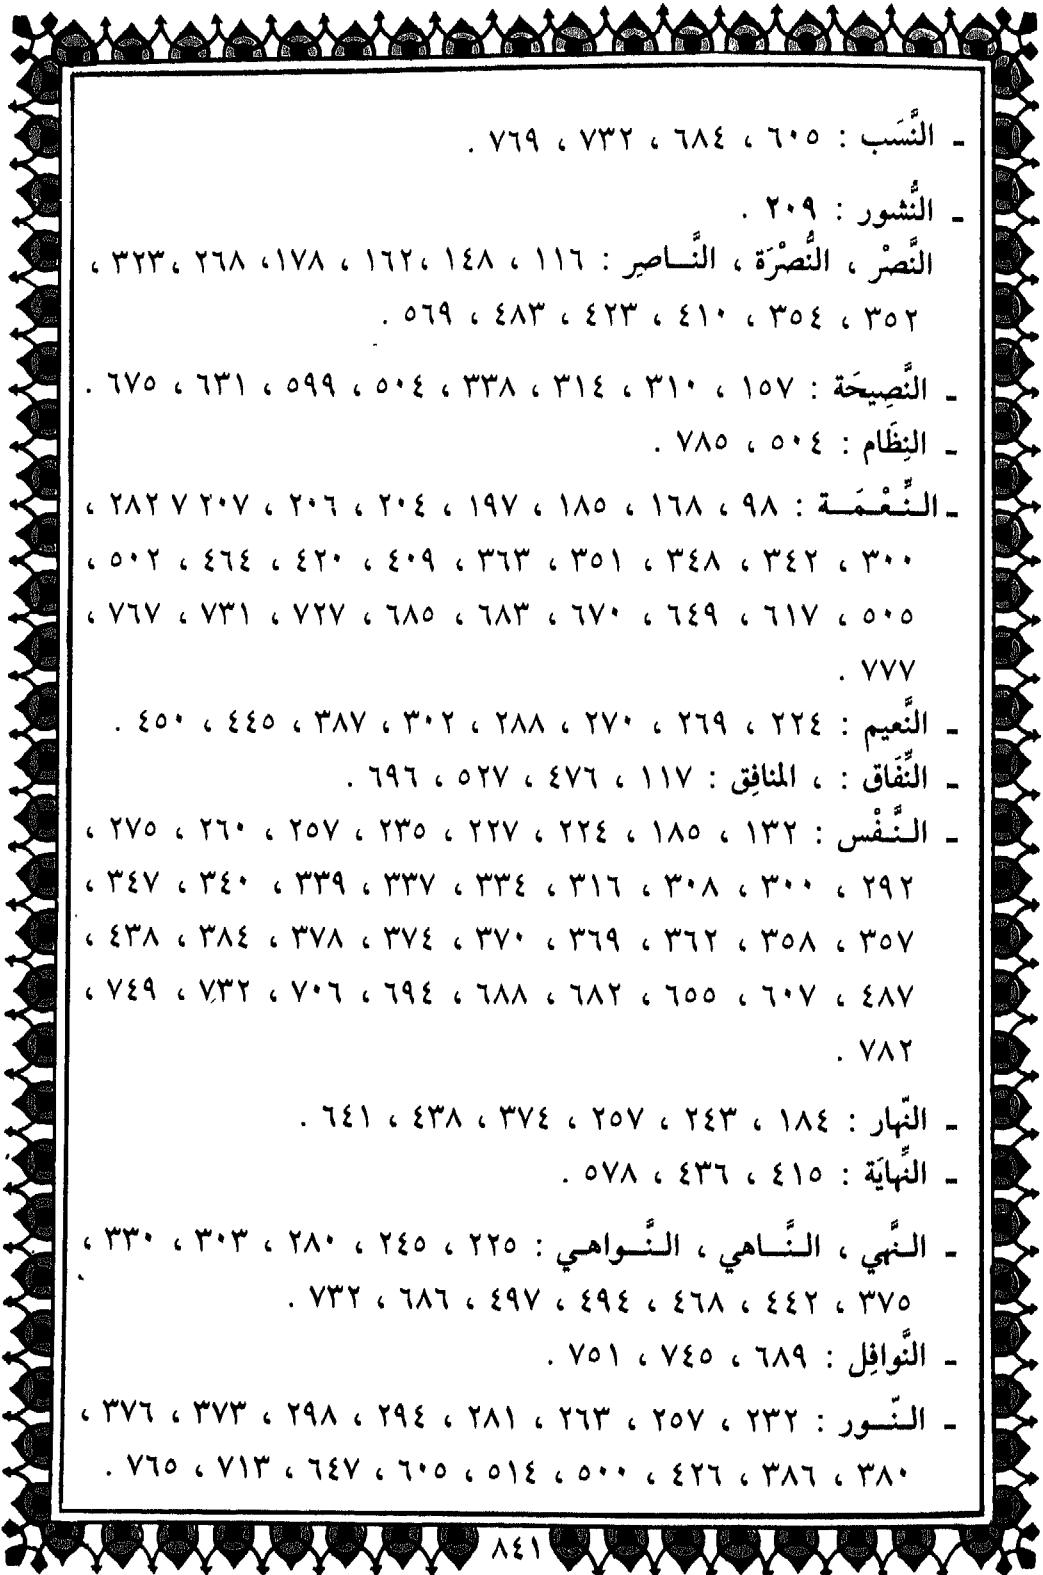 ـ النَّسَب : ٦٠٥ ، ٦٨٤ ، ٧٣٢ ، ٧٦٩ .
ـ النُّشور : ٢٠٩ .
النَّصْر ، النُّصْرَة ، النَّـاصِر : ١١٦ ، ١٤٨ ،١٦٢ ، ١٧٨، ٢٦٨ ،٣٢٣ ،
٣٥٢ ، ٣٥٤ ، ٤١٠ ، ٤٢٣ ، ٤٨٣ ، ٥٦٩ .
ـ النَّصِيحَة : ١٥٧ ، ٣١٠ ، ٣١٤ ، ٣٣٨ ، ٥٠٤ ، ٥٩٩ ، ٦٣١ ، ٦٧٥ .
ـ النِظَام : ٥٠٤ ، ٧٨٥ .
ـ النِّـعْـمَـة : ٩٨ ، ١٦٨ ، ١٨٥ ، ١٩٧ ، ٢٠٤ ، ٢٠٦ ، ٢٠٧ ٧ ٢٨٢ ،
٣٠٠ ، ٣٤٢ ، ٣٤٨ ، ٣٥١ ، ٣٦٣ ، ٤٠٩ ، ٤٢٠ ، ٤٦٤ ، ٥٠٢ ،
٥٠٥ ، ٦١٧ ، ٦٤٩ ، ٦٧٠ ، ٦٨٣ ، ٦٨٥ ، ٧٢٧ ، ٧٣١ ، ٧٦٧ ،
٧٧٧ .
ـ النَّعيم : ٢٢٤ ، ٢٦٩ ، ٢٧٠ ، ٢٨٨ ، ٣٠٢ ، ٣٨٧ ، ٤٤٥ ، ٤٥٠ .
ـ النِّفَاق : ، المنافِق : ١١٧ ، ٤٧٦ ، ٥٢٧ ، ٦٩٦ .
ـ الـنَّـفْس : ١٣٢ ، ١٨٥ ، ٢٢٤ ، ٢٢٧ ، ٢٣٥ ، ٢٥٧ ، ٢٦٠ ، ٢٧٥ ،
٢٩٢ ، ٣٠٠ ، ٣٠٨ ، ٣١٦ ، ٣٣٤ ، ٣٣٧ ، ٣٣٩ ، ٣٤٠ ، ٣٤٧ ،
٣٥٧ ، ٣٥٨ ، ٣٦٢ ، ٣٦٩ ، ٣٧٠ ، ٣٧٤ ، ٣٧٨ ، ٣٨٤ ، ٤٣٨ ،
٤٨٧ ، ٦٠٧ ، ٦٥٥ ، ٦٨٢ ، ٦٨٨ ، ٦٩٤ ، ٧٠٦ ، ٧٣٢ ، ٧٤٩ ،
٧٨٢ .
ـ النّهار : ١٨٤ ، ٢٤٣ ، ٢٥٧ ، ٣٧٤ ، ٤٣٨ ، ٦٤١ .
ـ النِّهايَة : ٤١٥ ، ٤٣٦ ، ٥٧٨ .
ـ الـنَّهي ، الـنَّـاهي ، الـنَّـواهـي : ٢٢٥ ، ٢٤٥ ، ٢٨٠ ، ٣٠٣ ، ٣٣٠ ،
٣٧٥ ، ٤٤٢ ، ٤٦٨ ، ٤٩٤ ، ٤٩٧ ، ٦٨٦ ، ٧٣٢ .
ـ النَّوافِل : ٦٨٩ ، ٧٤٥ ، ٧٥١ .
ـ الـنّـور : ٢٣٢ ، ٢٥٧ ، ٢٦٣ ، ٢٨١ ، ٢٩٤ ، ٢٩٨ ، ٣٧٣ ، ٣٧٦ ،
٣٨٠ ، ٣٨٦ ، ٤٢٦ ، ٥٠٠ ، ٥١٤ ، ٦٠٥ ، ٦٤٧ ، ٧١٣ ، ٧٦٥ .
٨٤١